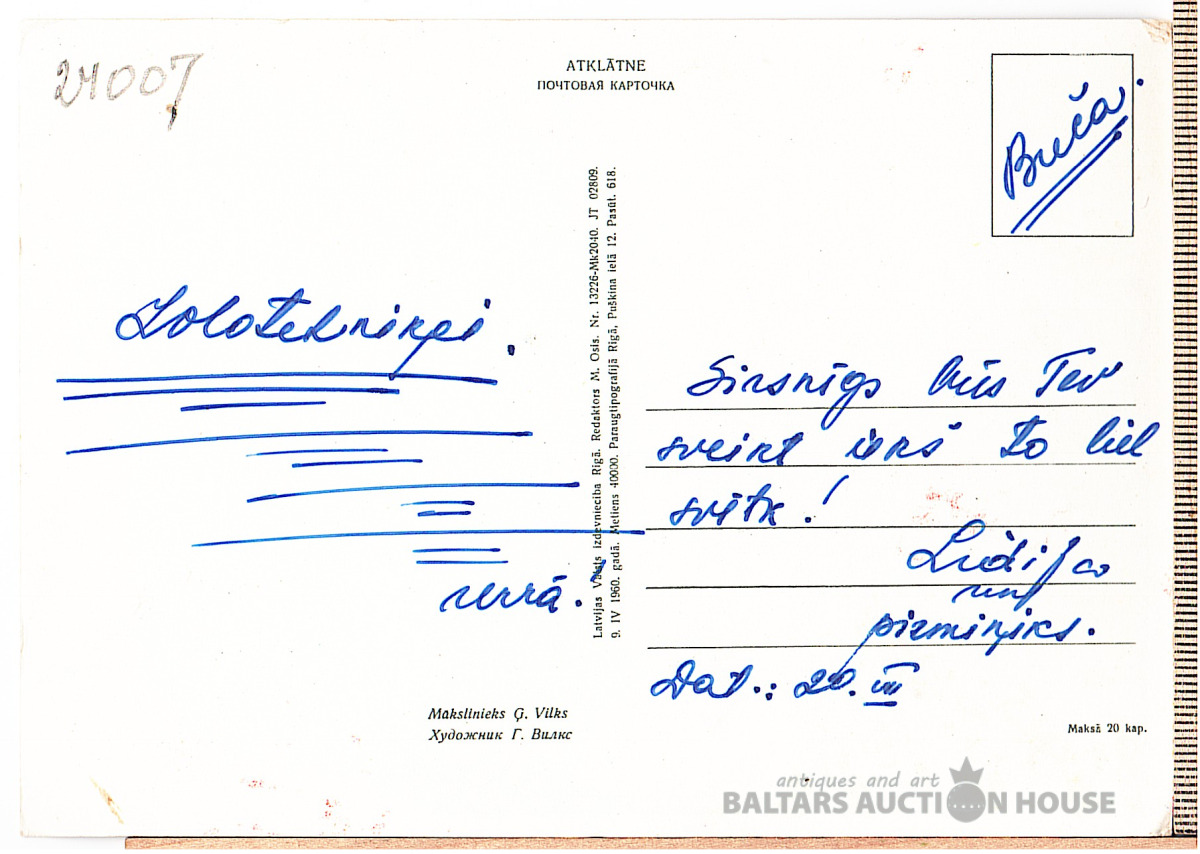 24007
ATKLĀTNE
ПОЧТОВАЯ КАРТОЧКА
Buča.
Latvijas Valsts izdevniecība Rīgā. Redaktors M. Osis. Nr. 13226-Mk2040. JT 02809.
9. IV 1960. gadā. Metiens 40000. Paraugtipografijā Rīgā, Puškina ielā 12. Pasūt. 618.
Sirsnīgs būs Tev
sveikt iekš to liel
svētk!
un
piemiņiks.
Dat.: 20. VII
Mākslinieks Ģ. Vilks
Художник Г. Вилкс
Maksā 20 kap.
antiques and art
BALTARS AUCTION HOUSE